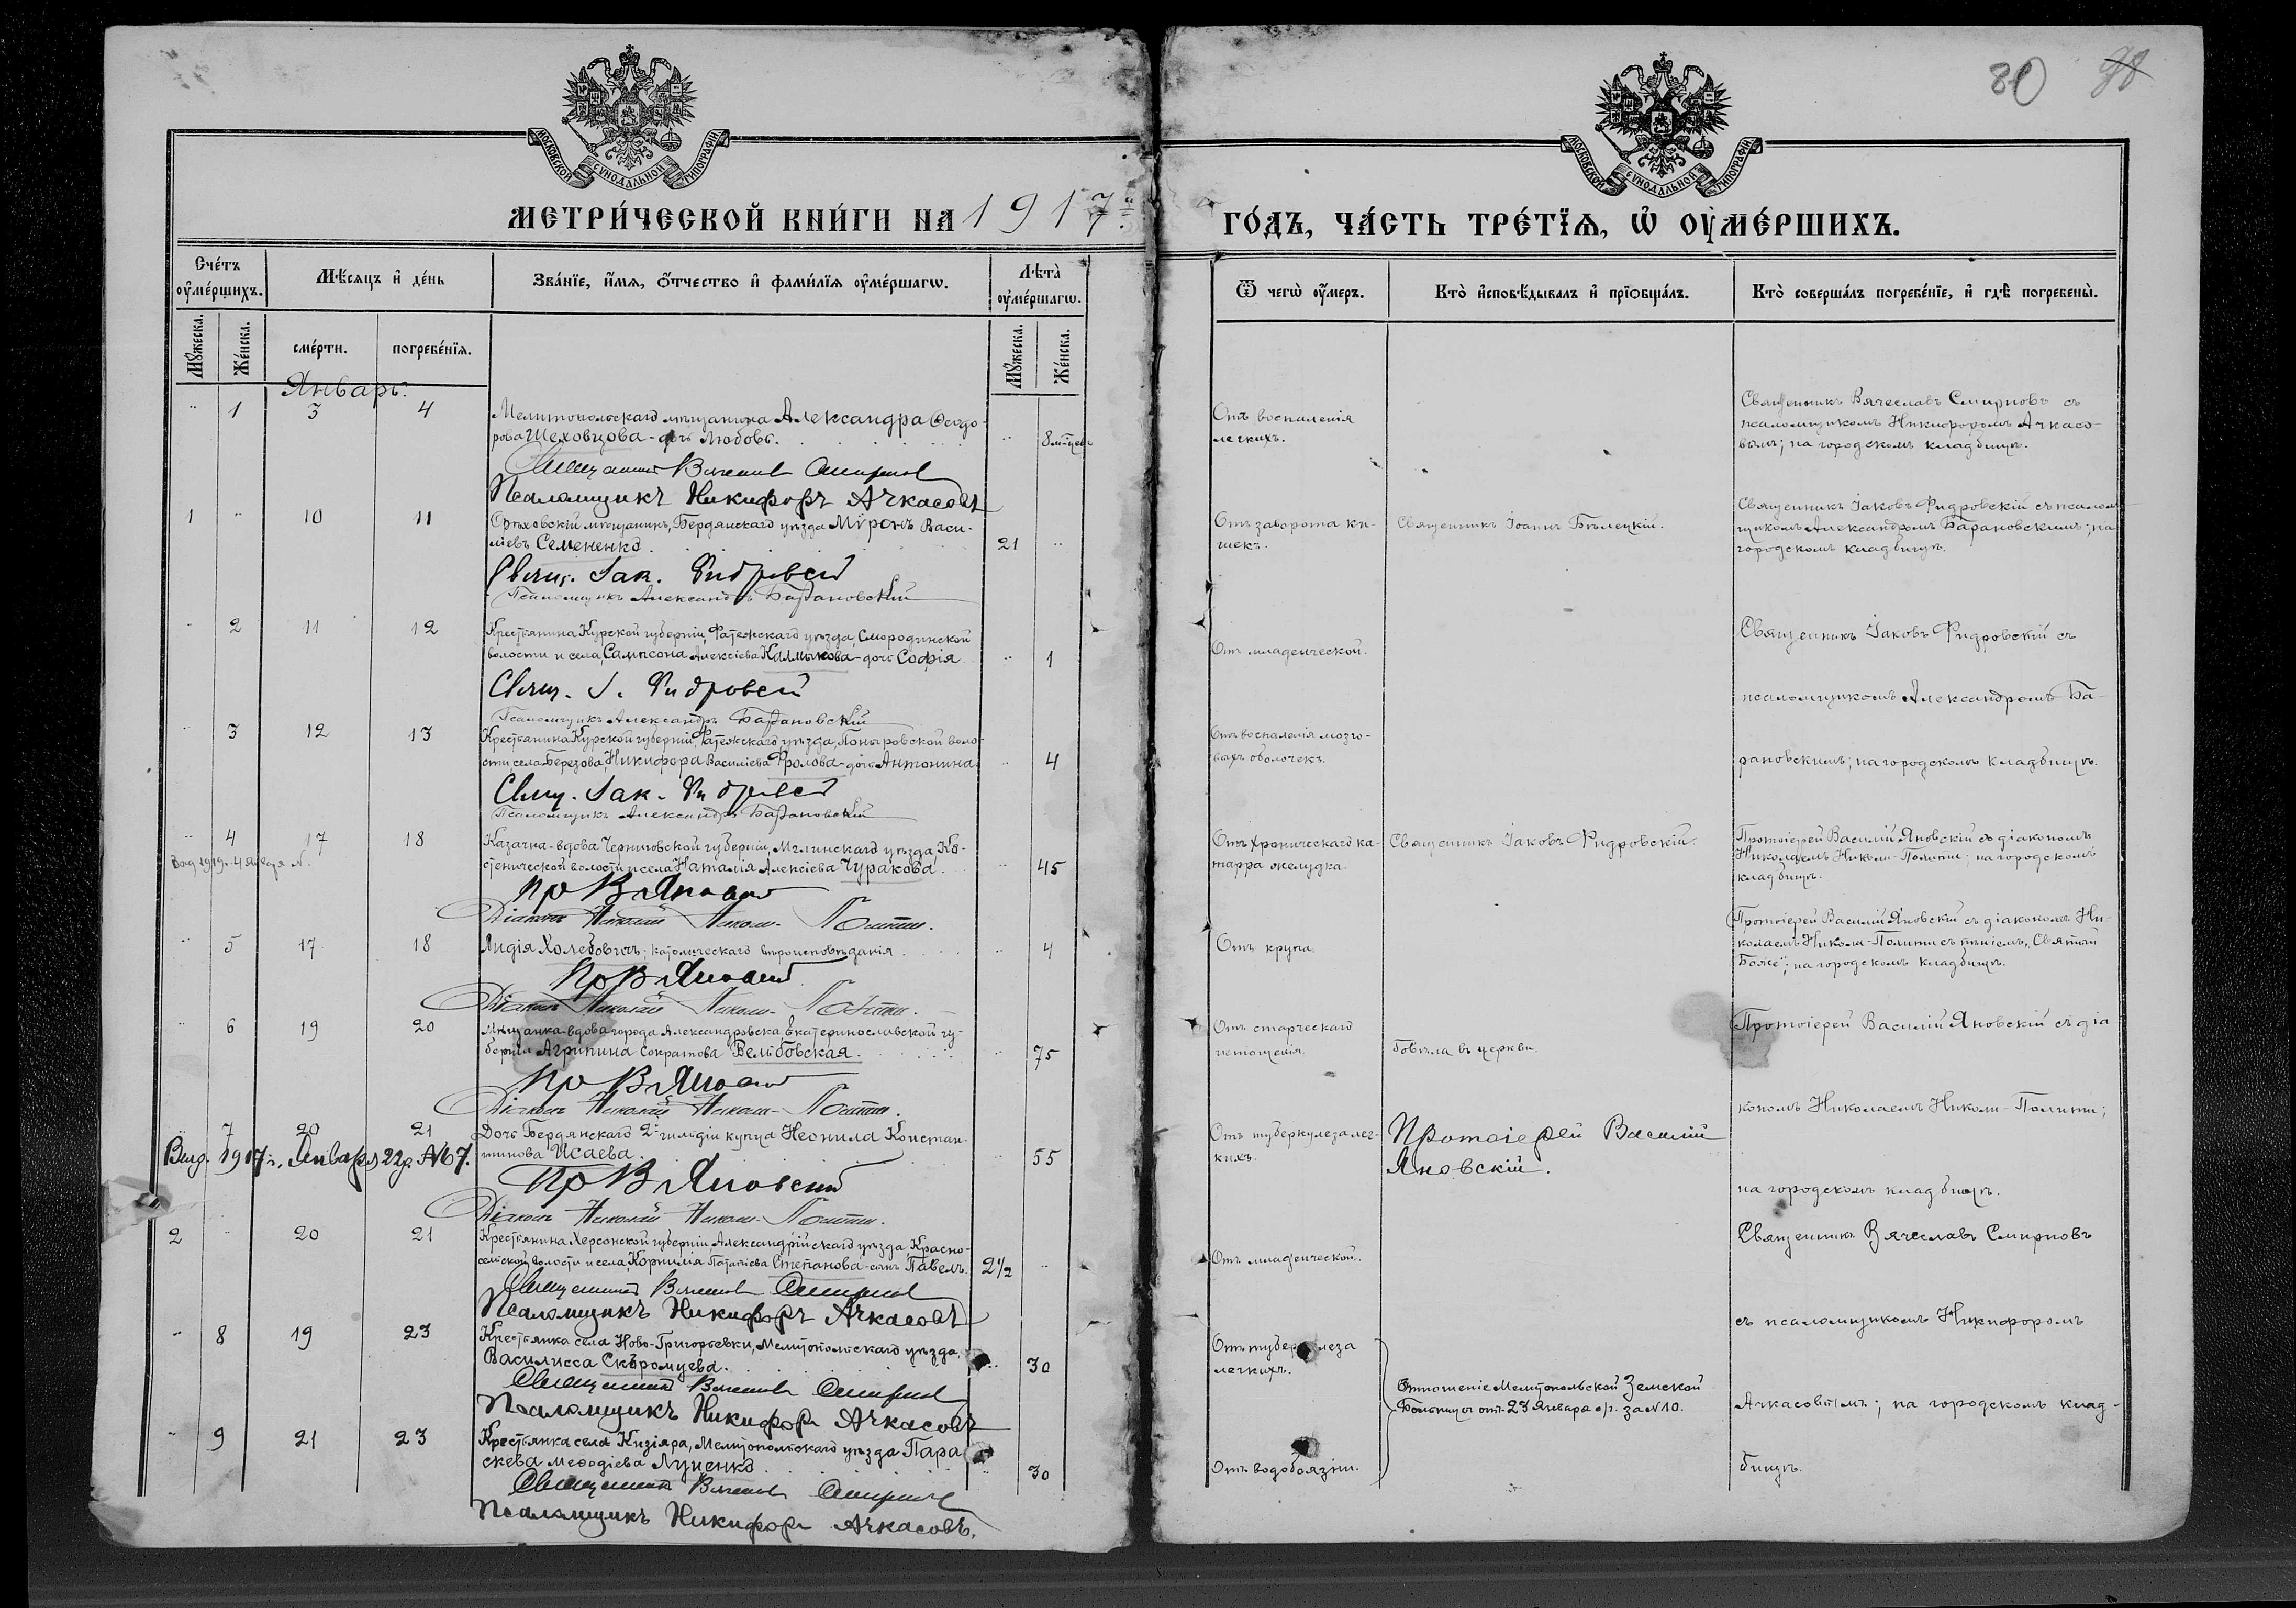 80 98
МОСКОВСКОЙ СѴНОДАЛЬНОЙ ТИПОГРАФІИ
МОСКОВСКОЙ СѴНОДАЛЬНОЙ ТИПОГРАФІИ
МЕТРИ́ЧЕСКОЙ КНИ́ГИ НА 1917 г.
ГО́ДЪ, ЧА́СТЬ ТРЕ́ТЇѦ, Ѡ ОУ҆МЕ́РШИХЪ.
Сче́тъ оу҆ме́ршихъ.
Мѣ́сяцъ и҆ де́нь
Зва́нїе, и҆́мѧ, ѻ҆́тчество и҆ фами́лїѧ оу҆ме́ршагѡ.
Лѣ̀та оу҆ме́ршагѡ.
Ѿ чегѡ̀ оу҆́меръ.
Кто̀ и҆сповѣ́дывалъ и҆ прїѡбща́лъ.
Кто̀ соверша́лъ погребе́нїе, и҆ гдѣ̀ погребены̀.
Мꙋ́жеска.
Же́нска.
сме́рти.
погребе́нїѧ.
Мꙋ́жеска.
Же́нска.
Январь.
" 1 3 4
Мелитопольскаго мѣщанина Александра Ѳеодо-
рова Шеховцова - дочь Любовь. " 8 мѣсяцев
Священник Вячеслав Смирнов
Псаломщикъ Никифоръ Ачкасовъ
Отъ воспаленія
легкихъ.
Священникъ Вячеславъ Смирновъ съ
псаломщикомъ Никифоромъ Ачкасо-
вымъ; на городскомъ кладбищѣ.
1 " 10 11
Орѣховскій мѣщанинъ, Бердянскаго уѣзда Мѵронъ Васи-
ліевъ Семененко. 21 "
Свящ. Іак. Фидровскій
Псаломщикъ Александръ Барановскій
Отъ заворота ки-
шекъ.
Священникъ Іоаннъ Бѣлецкій.
Священникъ Іаковъ Фидровскій съ псалом-
щикомъ Александромъ Барановскимъ; на
городскомъ кладбищѣ.
" 2 11 12
Крестьянина Курской губерніи, Фатежскаго уѣзда, Смородинской
волости и села, Сампсона Алексіева Калмыкова - дочь Софія. " 1
Свящ. І. Фидровскій
Псаломщикъ Александръ Барановскій
Отъ младенческой.
Священникъ Іаковъ Фидровскій съ
псаломщикомъ Александромъ Ба-
" 3 12 13
Крестьянина Курской губерніи, Фатежскаго уѣзда, Поныровской воло-
сти села Березова, Никифора Василіева Фролова - дочь Антонина. " 4
Свящ. Іак. Фидровскій
Псаломщикъ Александръ Барановскій
Отъ воспаленія мозго-
выхъ оболочекъ.
рановскимъ; на городскомъ кладбищѣ.
" 4 17 18
Казачка-вдова Черниговской губерніи, Мглинскаго уѣзда, Ко-
стенической волости и села Наталія Алексіева Чуракова. " 45
Пр В Яновскій
Діаконъ Николай Николи-Полити.
Отъ хроническаго ка-
тарра желудка.
Священникъ Іаковъ Фидровскій.
Протоіерей Василій Яновскій съ діакономъ
Николаемъ Николи-Полити; на городскомъ
кладбищѣ.
" 5 17 18
Лидія Холебовичъ; католическаго вѣроисповѣданія. " 4
Пр В Яновскій
Діаконъ Николай Николи-Полити.
Отъ крупа.
Протоіерей Василій Яновскій съ діакономъ Ни-
колаемъ Николи-Полити съ пѣніемъ „Святый
Боже"; на городскомъ кладбищѣ.
" 6 19 20
Мѣщанка-вдова города Александровска Екатеринославской гу-
берніи Агрипина Сократова Вельбовская. " 75
Пр В Яновскій
Діаконъ Николай Николи-Полити.
Отъ старческаго
истощенія.
Говѣла въ церкви.
Протоіерей Василій Яновскій съ діа-
кономъ Николаемъ Николи-Полити;
" 7 20 21
Выд. 1917 г. Января 22 д. №7.
Дочь Бердянскаго 2й гильдіи купца Неонила Констан-
тинова Исаева. " 55
Пр В Яновскій
Діаконъ Николай Николи-Полити.
Отъ туберкулеза лег-
кихъ.
Протоіерей Василій
Яновскій.
на городскомъ кладбищѣ.
2 " 20 21
Крестьянина Херсонской губерніи, Александрійскаго уѣзда, Красно-
сельской волости и села, Корнилія Степанова - сынъ Павелъ. 2½ "
Священник Вячеслав Смирнов
Псаломщикъ Никифоръ Ачкасовъ
Отъ младенческой.
Священникъ Вячеславъ Смирновъ
съ псаломщикомъ Никифоромъ
" 8 19 23
Крестьянка села Ново-Григорьевки, Мелитопольскаго уѣзда,
Василисса Скоромцева. " 30
Священник Вячеслав Смирнов
Псаломщикъ Никифоръ Ачкасовъ
Отъ туберкулеза
легкихъ.
Отношеніе Мелитопольской Земской
Больницы отъ 23 Января с/г. за №10.
Ачкасовымъ; на городскомъ клад-
" 9 21 23
Крестьянка села Кизіяра, Мелитопольскаго уѣзда Пара-
скева Меѳодіева Луценко. " 30
Священник Вячеслав Смирнов
Псаломщикъ Никифоръ Ачкасовъ.
Отъ водобоязни.
бищѣ.